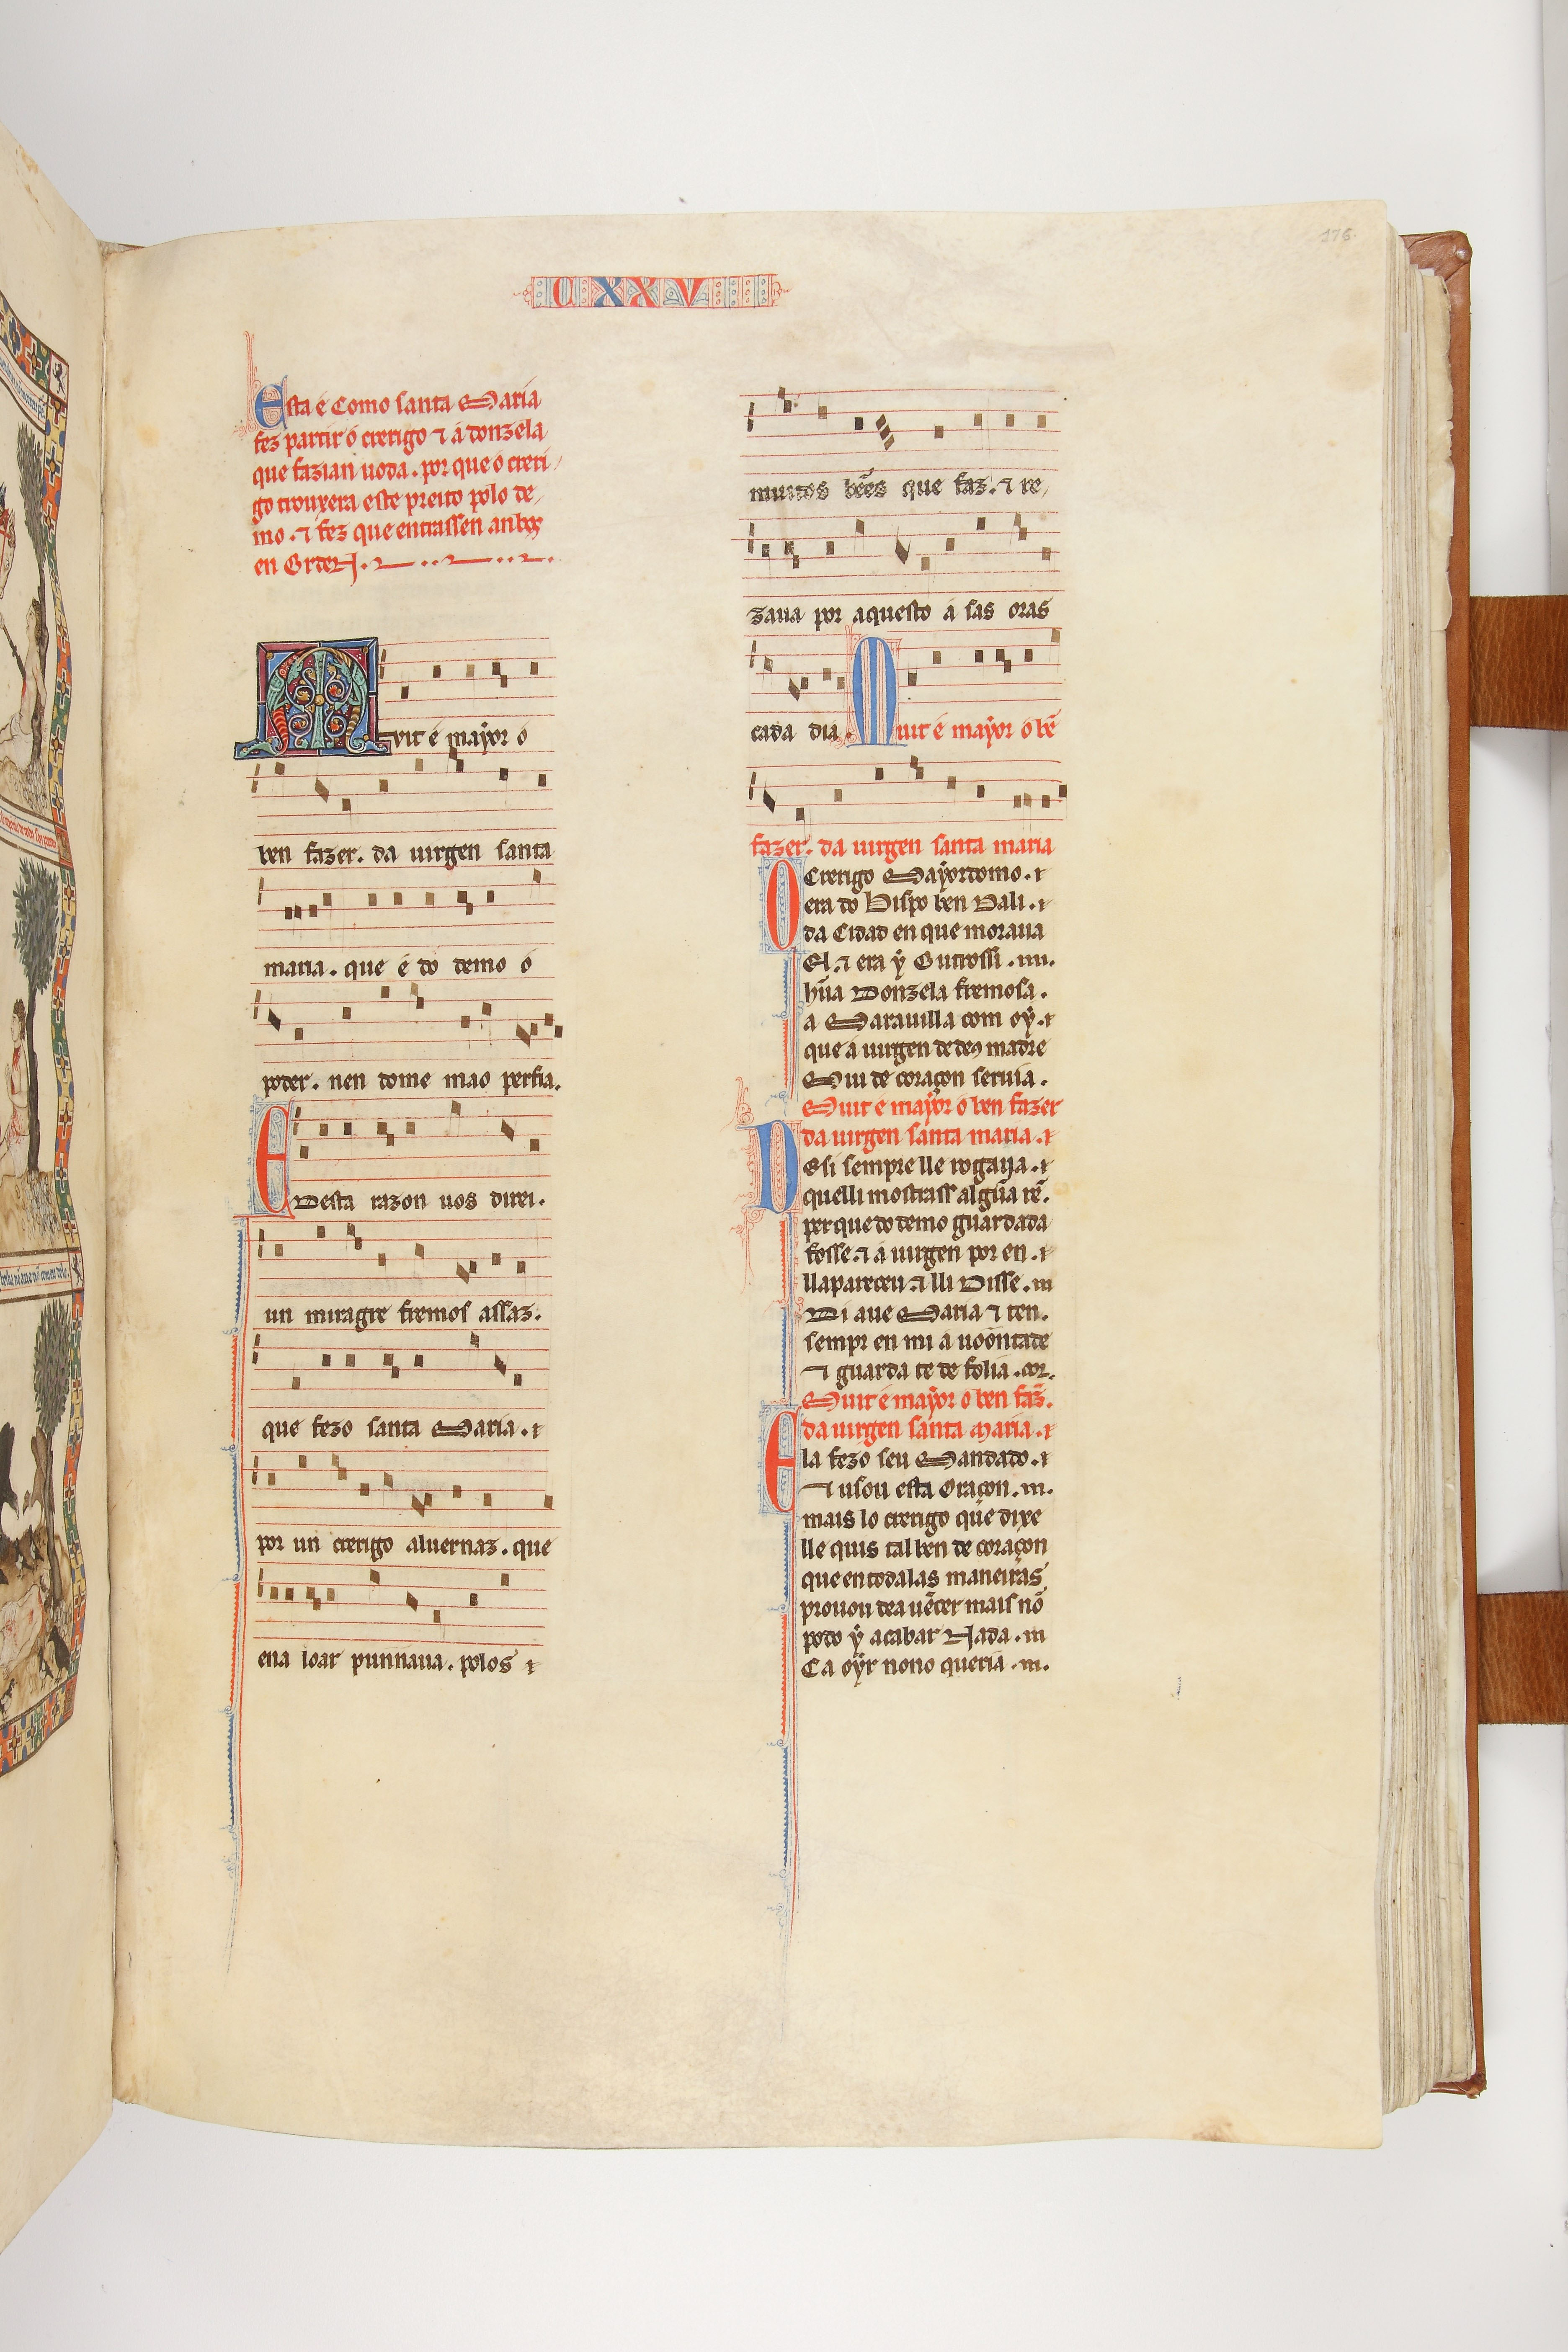 176.
CXXV
Esta é como santa Maria
fez partir o crerigo ⁊ a donzela
que fazian uoda. por que o creri
go trouxera este preito polo de
mo. ⁊ fez que entrassen anbos
en Orden.
Muit é mayor o
ben fazer. da uirgen santa
maria. que é do demo o
poder. nen dome mao perfia.
E desta razon uos direi.
un miragre fremos assaz.
que fezo santa Maria.
por un crerigo aluernaz. que
ena loar punnaua. polos
muitos bẽes que faz. ⁊ re
zaua por aquesto a sas oras
cada dia. Muit é mayor o bẽ
fazer. da uirgen santa maria
O Crerigo Mayordomo.
era do Bispo ben Dali.
da Cidad en que moraua
El. ⁊ era ẏ outrossi.
hũa Donzela fremosa.
a Marauilla com oẏ.
que a uirgen de deus madre
Mui de coraçon seruia.
Muit é mayor o ben fazer
da uirgen santa maria.
D Esi sempre lle rogaua.
quelli mostrass algũa rẽ.
per que do demo guardada
fosse. ⁊ a uirgen por en.
llapareceu ⁊ lli Disse.
Di aue Maria ⁊ ten.
sempr en mi a uoontade
⁊ guarda te de folia.
Muit é mayor o ben faz.
da uirgen santa Maria.
Ela fezo seu Mandado.
⁊ usou esta Oraçon.
mais lo crerigo que dixe
lle quis tal ben de coraçon
que en todalas maneiras
prouou dea uẽcer mais nõ
podo ẏ acabar Nada.
Ca oẏr nono queria.